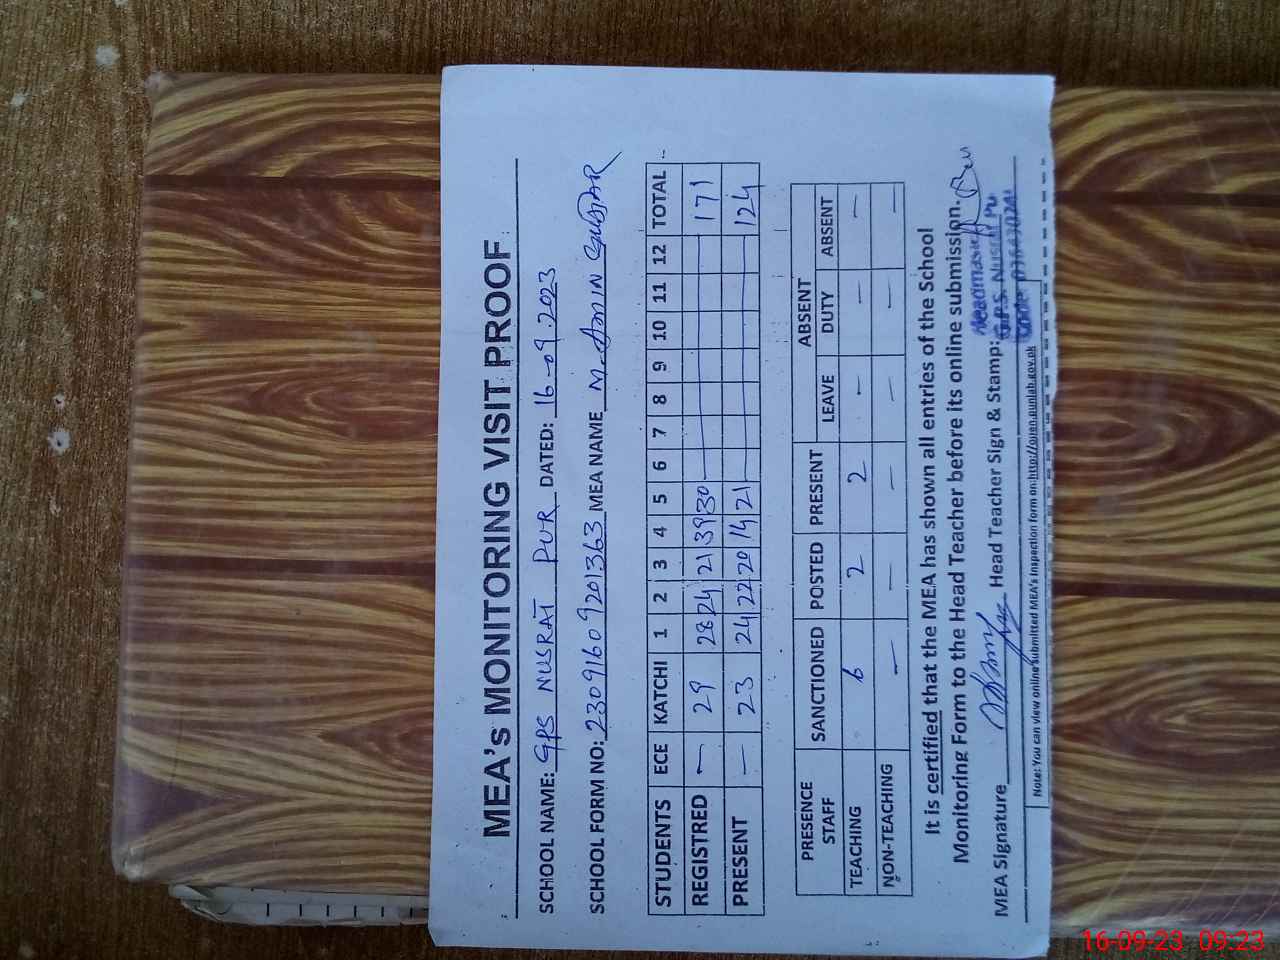 MEA's MONITORING VISIT PROOF
SCHOOL NAME: GPS NUSRAT PUR DATED: 16-09-2023
SCHOOL FORM NO: 230916092013 63 MEA NAME M. AMIN
STUDENTS ECE KATCHI 1 2 3 4 5 6 7 8 9 10 11 12 TOTAL
REGISTRED — 29 28 24 21 39 30 — 171
PRESENT — 23 24 22 20 14 21 — 124
PRESENCE STAFF SANCTIONED POSTED PRESENT ABSENT
LEAVE DUTY ABSENT
TEACHING 6 2 2 — — —
NON-TEACHING — — — — — —
It is certified that the MEA has shown all entries of the School
Monitoring Form to the Head Teacher before its online submission.
MEA Signature Head Teacher Sign & Stamp: Headmaster
G.P.S. Nusrat Pu
Code:
Note: You can view online submitted MEA's Inspection form on:http://open.punjab.gov.pk
16-09-23 09:23